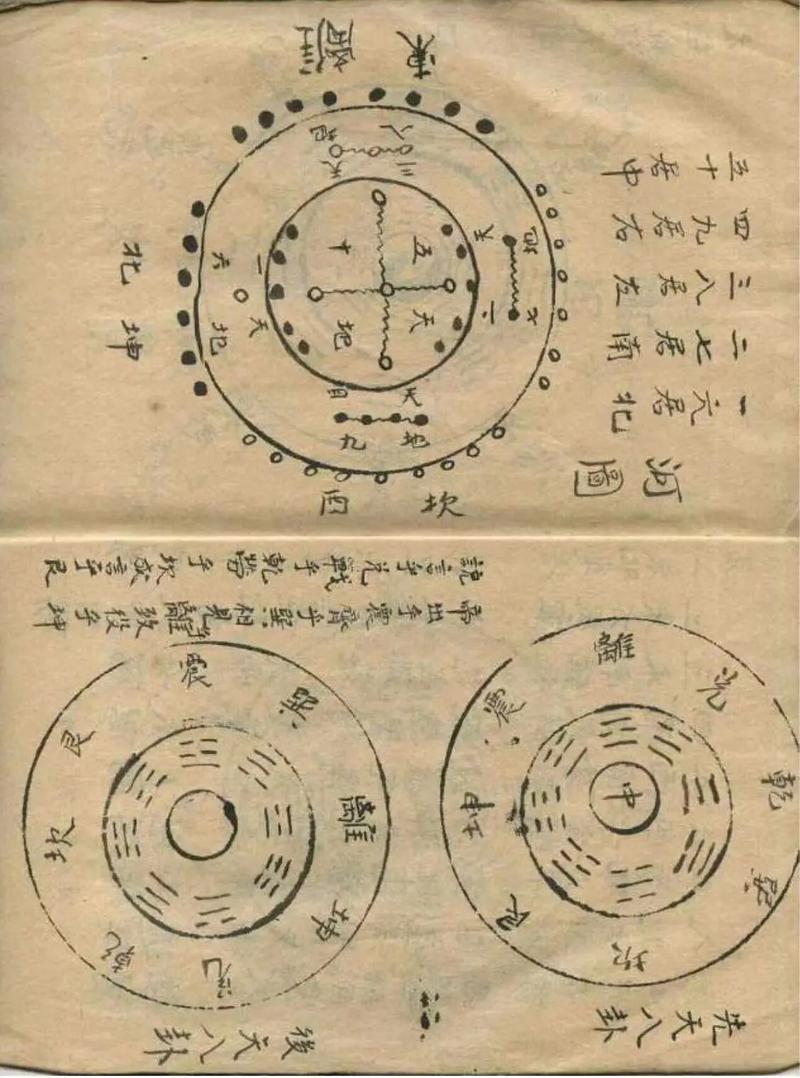 河圖
一六居北
二七居南
三八居左
四九居右
五十居中
東
北 坤
西 坎
五
十
天
地
天
一
地
六
天
三
八
地
九
帝出乎震齊乎巽相見乎離致役乎坤
說言乎兌戰乎乾勞乎坎成言乎艮
先天八卦
中
乾
兌
離
震
坤
艮
坎
巽
後天八卦
離
坤
兌
乾
坎
艮
震
巽